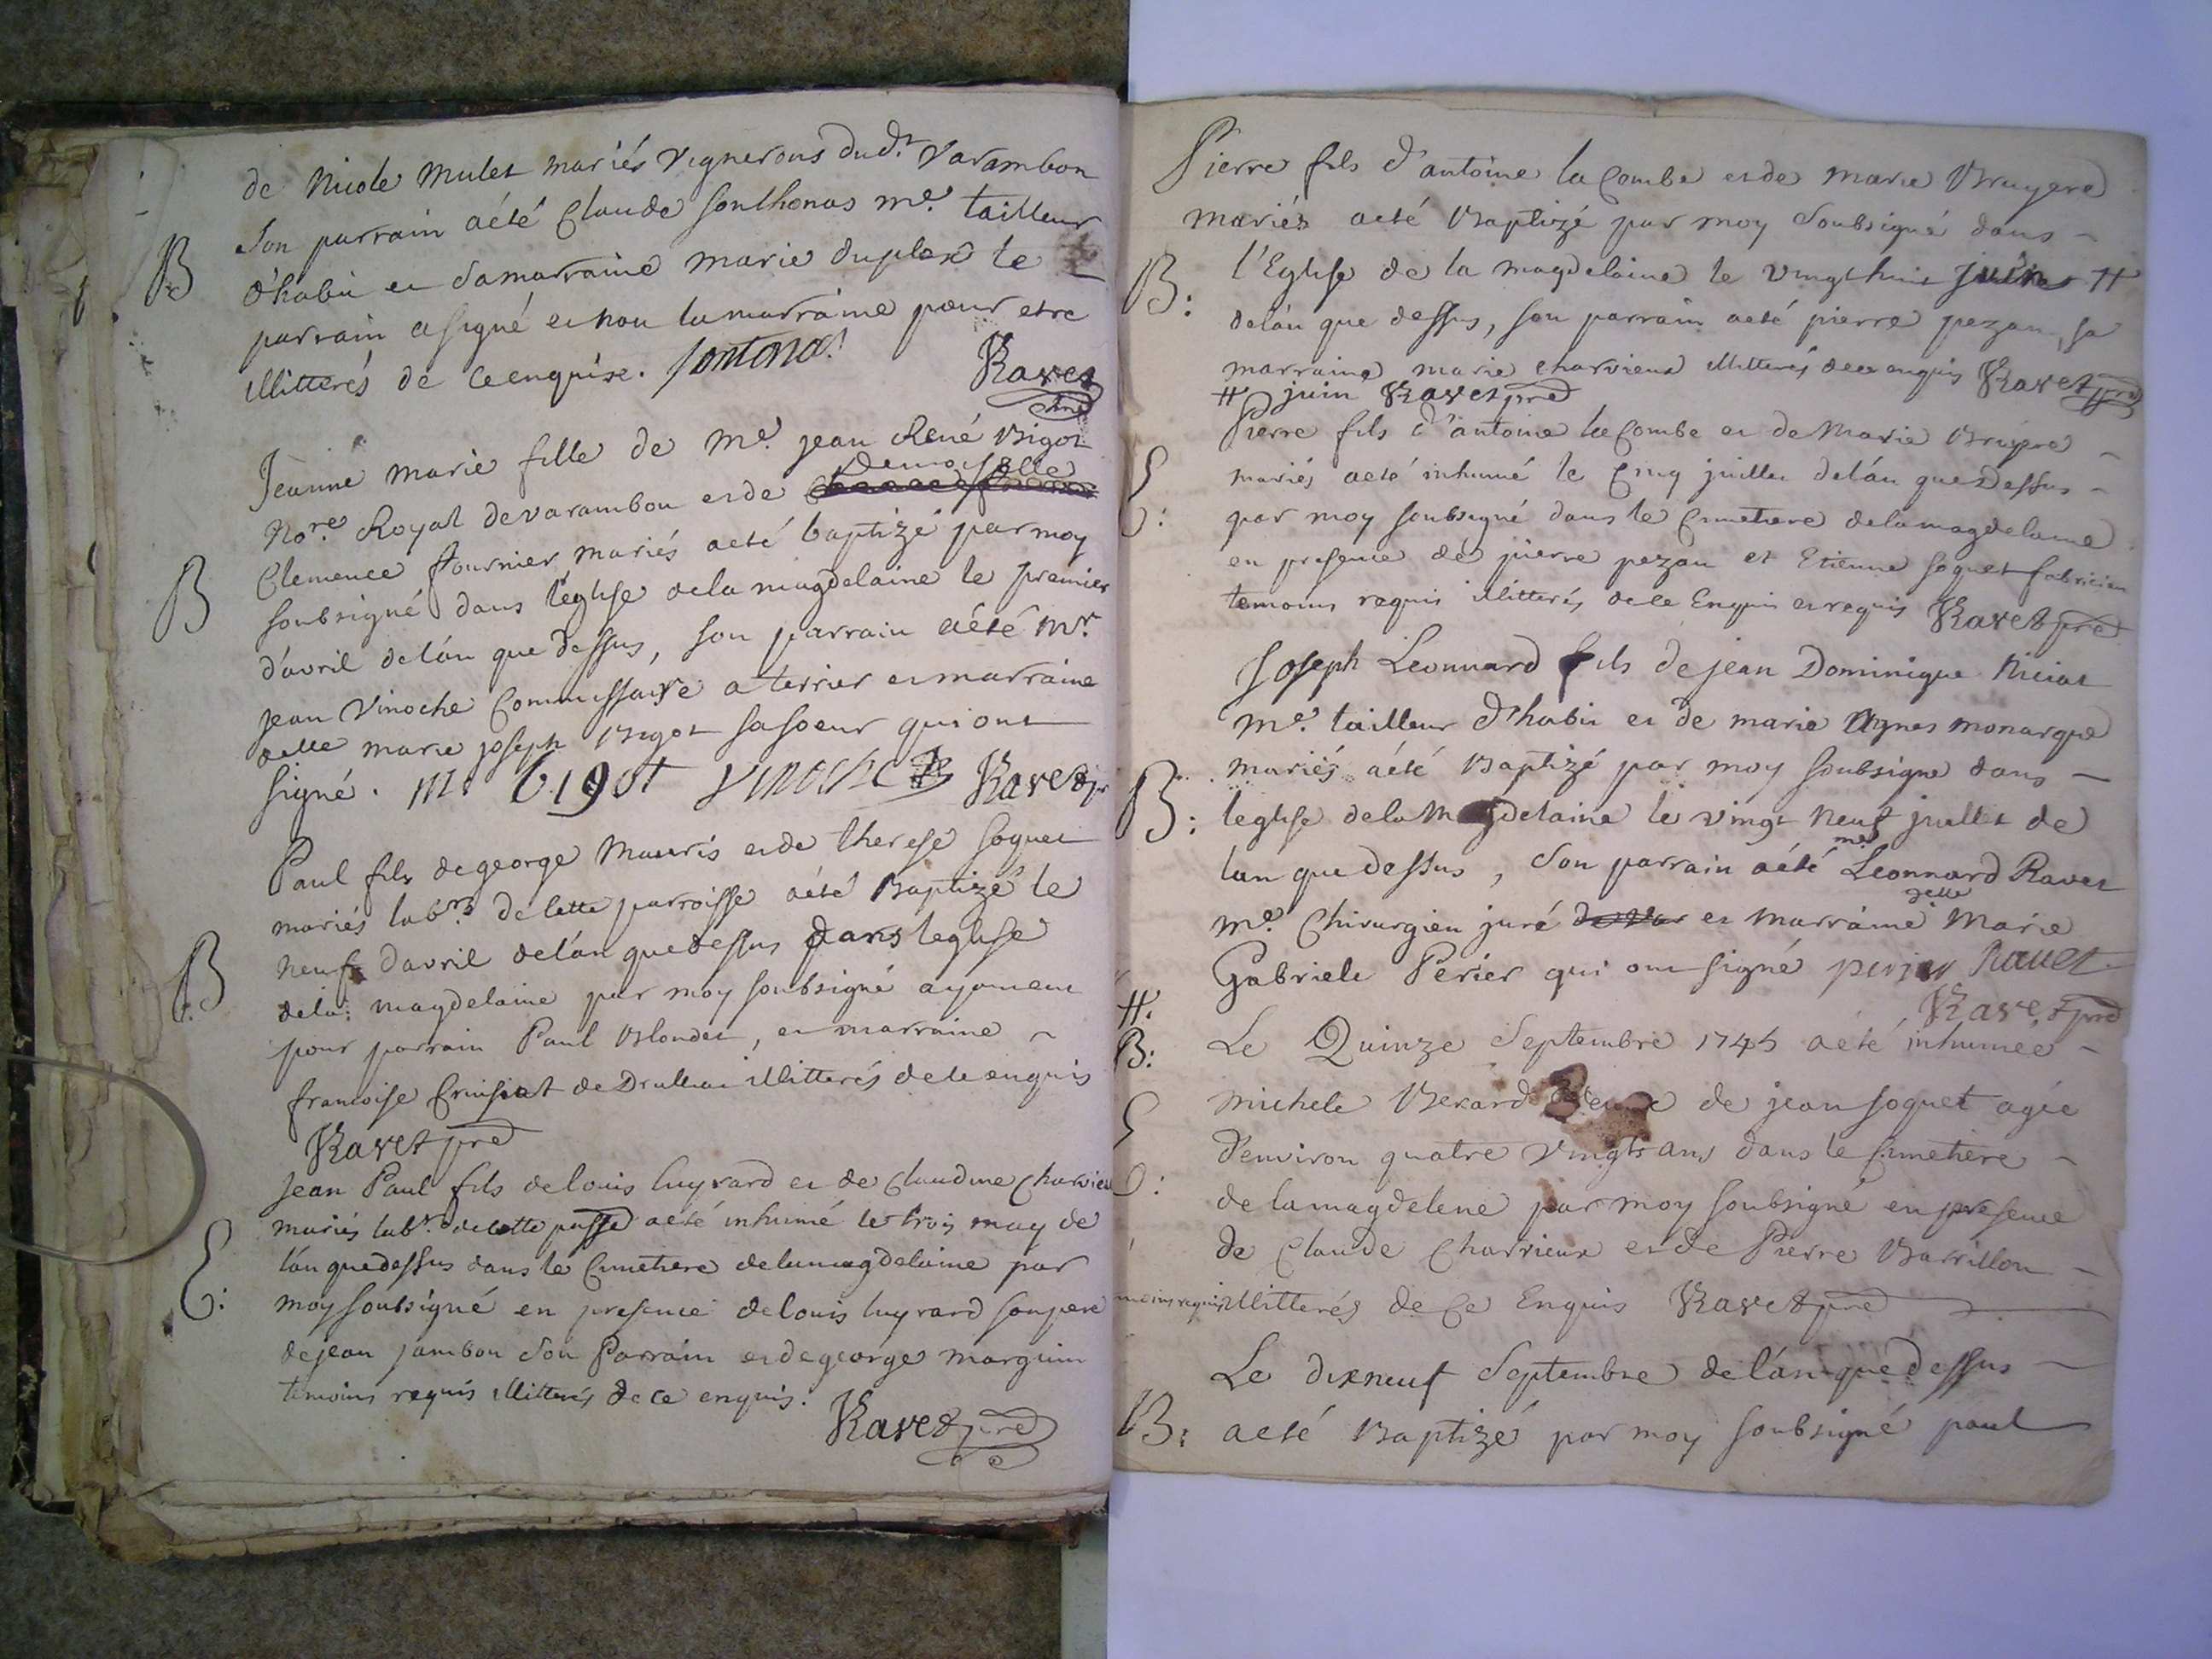 de Nicole Mulet mariés vignerons dud.t Varambon
Son parrain aété Claude Sonthonas me. tailleur
B
d'habit et Samarraine marie duplex le
parrain asigné et non lamarraine pour etre
illitterés de ce enquise. Sontona.
Ravet
pre
Jeanne marie fille de Me. jean René Bigot
Demoiselle
No.re Royal devarambon et de
B
Clemence fournier mariés aeté baptizé par moy
soubsigné dans l'eglise dela magdelaine le premier
d'avril delán que dessus, son parrain aété Mr.
jean Vinoche Commissaire a terrier et marraine
delle marie joseph Bigot sasoeur qui ont
signé. m bigot vinoche Ravet pr
Paul fils degeorge Mauris et de therese soguet
mariés labrs de cette parroisse aété Baptizé le
B
neuf d'avril delán que dessus dans leglise
dela magdelaine par moy soubsigné ayament
pour parrain Paul Blondet, et marraine
francoise Cruisiat de illitterés dece enquis
Ravet pre
jean Paul fils delouis luyrard et de Claudine Charvieu
mariés labr. decette passe aeté inhumé le trois may de
S:
lán quedessus dans le Cimetiere delamagdelaine par
moy soubsigné en presence delouis luyrard son pere
dejean jambon son Parrain et degeorge marguin
temoins requis illitterés de ce enquis.
Ravet pre
Pierre fils d'antoine la Combe et de marie Bruyere
mariés aeté Baptizé par moy soubsigné dans
B:
l'Eglise de la magdelaine le vingthuit juin #
delán que dessus, son parrain aeté pierre pezan, sa
marraine marie charvieux illitterés dece enquis Ravet pre
# juin Ravet pre
Pierre fils d'antoine la Combe et de Marie Bruyere
S:
mariés aeté inhumé le Cinq juillet delán que Dessus
par moy soubsigné dans le Cimetiere delamagdelaine
en presence de pierre pezan et Etienne soguet fabricien
temoins requis illitterés dece Enquis et requis Ravet pre
Joseph Leonnard fils de jean Dominique Niciat
me. tailleur d'habit et de marie Agnes monarque
mariés aété Baptizé par moy soubsigné dans
B:
leglise dela Magdelaine le vingt neuf juillet de
me
lan que dessus, Son parrain aété Leonnard Ravet
delle
me. Chirurgien juré et Marraine Marie
Gabriele Perier qui ont signé perier Ravet
#.
Ravet pre
B:
Le Quinze Septembre 1745 aeté inhumée
S:
michele Berard veuve de jean soguet agée
d'environ quatre vingts ans dans le Cimetiere
de la magdelene par moy soubsigné en presence
de Claude Charvieux et de Pierre Barrillon
temoins requis illitterés de Ce Enquis Ravet pre
Le dixneuf Septembre de lán que dessus
B:
aeté Baptizé par moy soubsigné paul